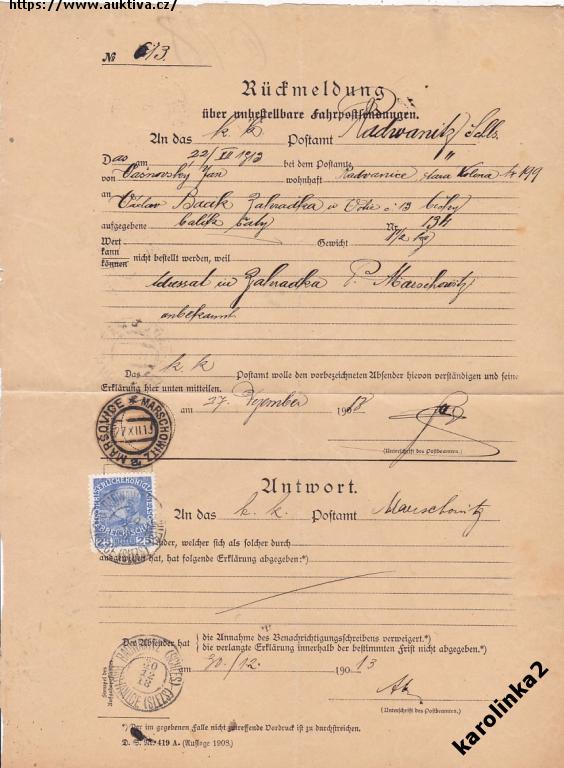 https://www.auktiva.cz/
№ 613.
Rückmeldung
über unbestellbare Fahrpostsendungen.
An das k. k. Postamt Radwanitz / Schles.
Das am 22/XII 1913 bei dem Postamte "
von Jan wohnhaft Radvanice, stara Kolona Nr 199
an Václav Bacik Zahradka u Votic č 13
aufgegebene balik Nr. 134
Wert Gewicht 1/2 kg
kann
können nicht bestellt werden, weil
Adressat in Zahradka P. Marschowitz
unbekannt
Das k k Postamt wolle den vorbezeichneten Absender hievon verständigen und seine
Erklärung hier unten mitteilen.
am 27. Dezember 1913
(Unterschrift des Postbeamten.)
MARŠOVICE * MARSCHOWITZ
Antwort.
An das k. k. Postamt Marschowitz
Absender, welcher sich als solcher durch
ausgewiesen hat, hat folgende Erklärung abgegeben:*)
Der Absender hat { die Annahme des Benachrichtigungsschreibens verweigert.*)
{ die verlangte Erklärung innerhalb der bestimmten Frist nicht abgegeben.*)
am 30./12 1913
RADWANITZ (SCHLES)
RADVANICE (SLEZS)
(Unterschrift des Postbeamten.)
*) Der im gegebenen Falle nicht zutreffende Vordruck ist zu durchstreichen.
D. S. Nr. 419 A. (Auflage 1908.)
karolinka2